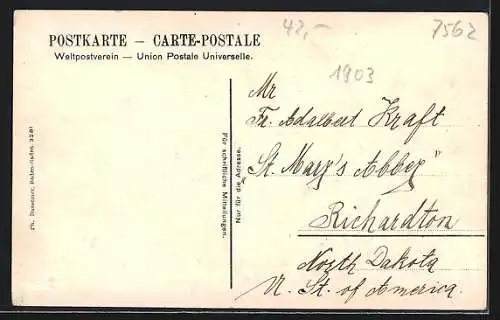 42,-
7562
POSTKARTE — CARTE-POSTALE
Weltpostverein — Union Postale Universelle.
1903
Mr
Fr. Adalbert Kraft
St. Mary's Abbey"
Richardton
North Dakota
U. St. of America.
Für schriftliche Mitteilungen.
Nur für die Adresse.
Baden-Baden